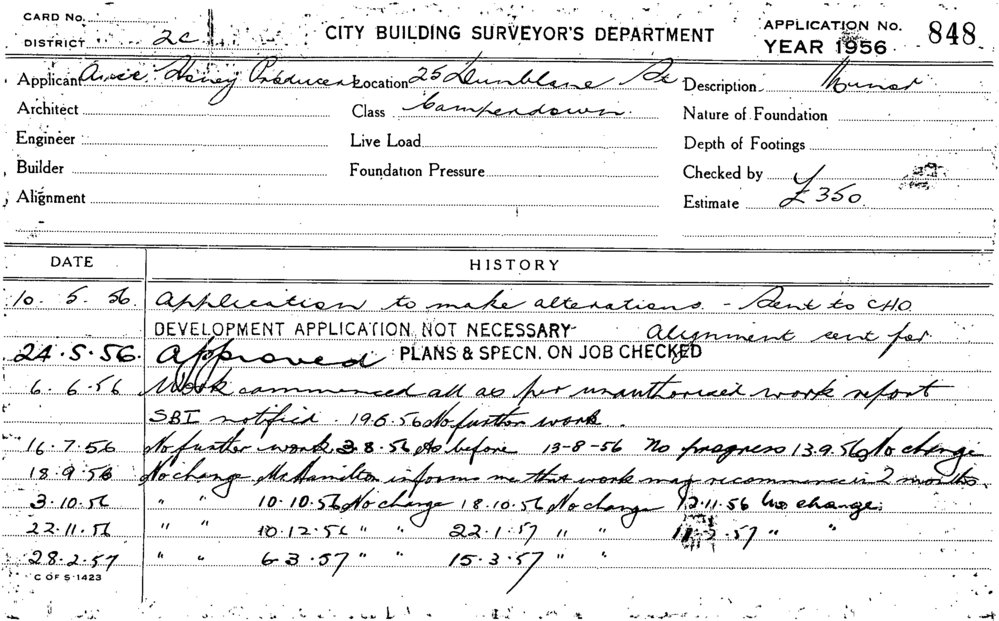 CARD No.
DISTRICT 2C
CITY BUILDING SURVEYOR'S DEPARTMENT
APPLICATION No. 848
YEAR 1956
Applicant Honey Producers Location 25 Dunblane St Description Minor
Architect Class Camperdown Nature of Foundation
Engineer Live Load Depth of Footings
Builder Foundation Pressure Checked by
Alignment Estimate £350
DATE HISTORY
10. 5. 56 Application to make alterations. - Sent to C.H.O.
DEVELOPMENT APPLICATION NOT NECESSARY alignment sent for
24.5.56. Approved PLANS & SPECN. ON JOB CHECKED
6. 6. 56 Work commenced all as per unauthorised work report
SBI notified. 19.6.56 No further work.
16.7.56 No further work. 3.8.56 As before 13-8-56 No progress 13.9.56 No change
18.9.56 No change Mr Hamilton informs me that work may recommence in 2 months.
3.10.56 " " 10.10.56 No change 18.10.56 No change 12.11.56 No change.
22.11.56 " " 10.12.56 " " 22.1.57 " " 2.57 " "
28.2.57 " " 6.3.57 " " 15.3.57 " "
C OF S 1423